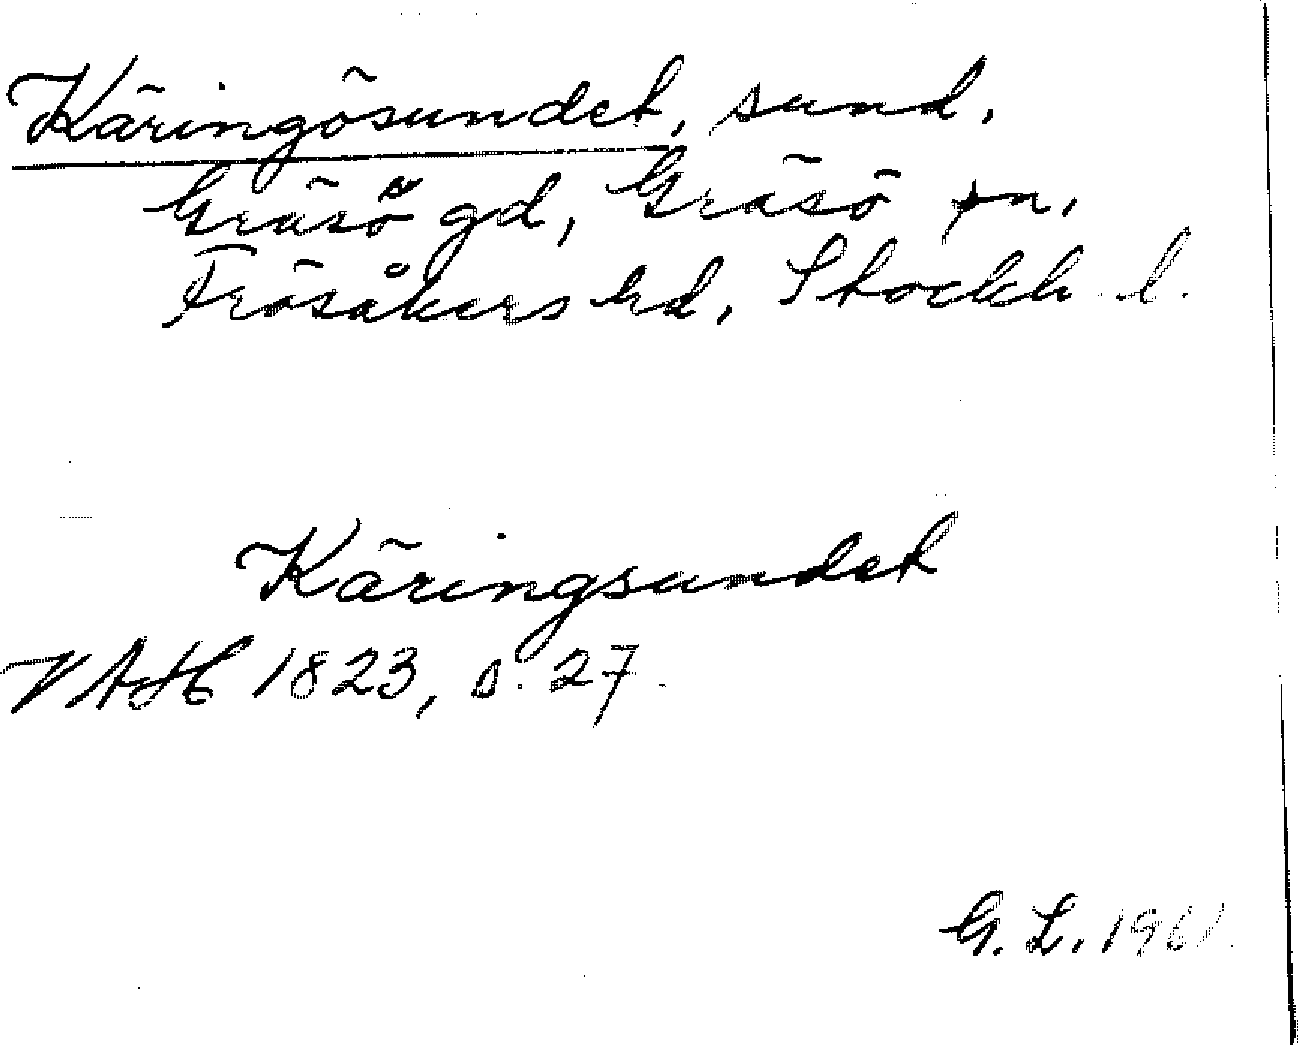 Käringösundet, sund.
Gräsö gd, Gräsö sn,
Frösåkers hd, Stockh. l.
Käringsundet
VAH 1823, s. 27.
G. L. 1961.